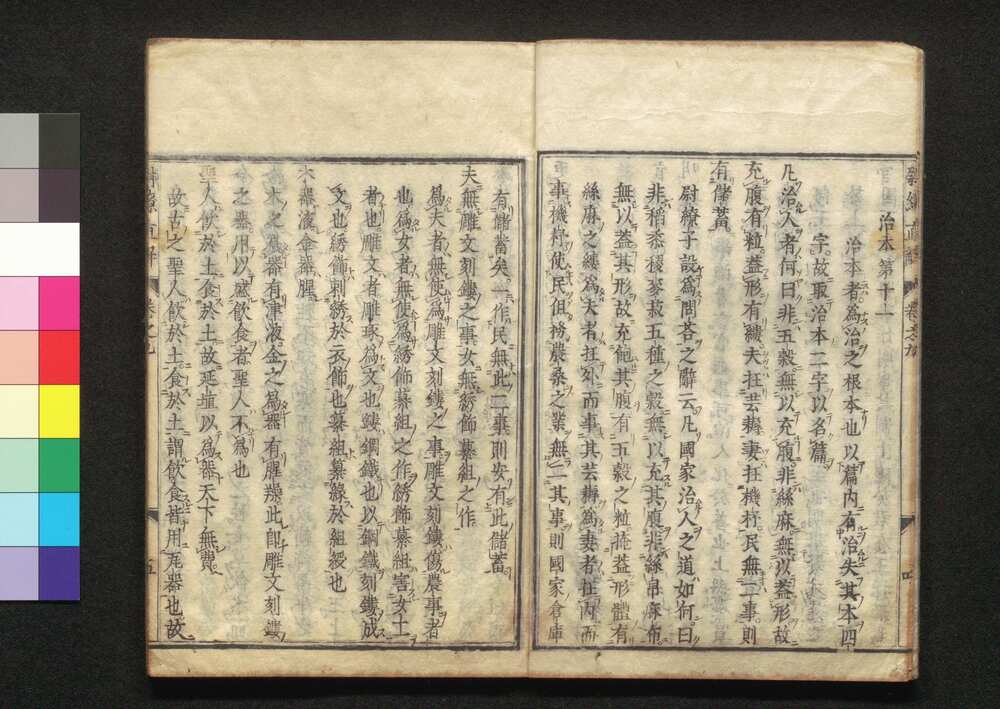 治本第十一
治本者爲治之根本也以篇内有治失其本四
字故取治本二字以名篇
凡治人者何曰非五穀無以充腹非絲麻無以葢形故
充腹有粒葢形有縷夫在芸耨妻在機杼民無二事則
有儲蓄
尉繚子設爲問荅之辭云凡國家治人之道如何曰
非稻黍稷麥菽五種之穀無以充其腹非絲帛麻布
無以葢其形故充飽其腹有五穀之粒掩葢形體有
絲麻之縷爲夫者在外而事其芸耨爲妻者在内而
事機杼使民俱務農桑之業無二其事則國家倉庫
有儲蓄矣一作民無此二事則安有此儲蓄
夫無雕文刻鏤之事女無綉飾纂組之作
爲夫者無使爲雕文刻鏤之事雕文刻鏤傷農事者
也爲女者無使爲綉飾纂組之作綉飾纂組害女工
者也雕文者雕琢爲文也鏤鋼鐵也以鋼鐵刻鏤成
文也綉飾刺綉於衣飾也纂組纂緣於組綬也
木器液金器腥
木之爲器有津液金之爲器有腥臊此即雕文刻鏤
之器用以盛飲食者聖人不爲也
聖人飲於土食於土故埏埴以爲器天下無費
故古之聖人飲於土食於土謂飲食皆用瓦器也故
卷之九
五